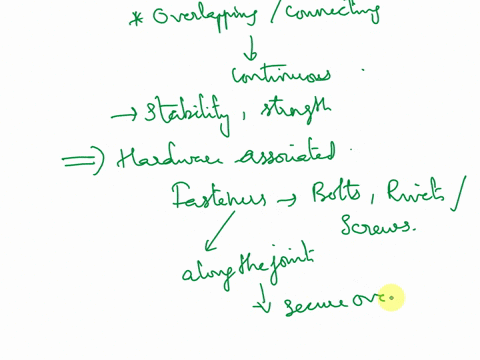 * Overlapping / Connecting
↓
Continuous
→ Stability, strength
⇒ Hardware associated.
Fasteners → Bolts, Rivets /
Screws.
along the joint
↓ secure ove